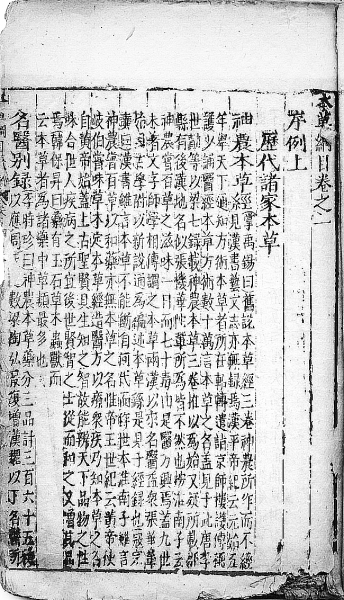 本草綱目卷之一
序例上
歷代諸家本草
神農本草經掌禹錫曰舊說本草經三卷神農所作而不經
見漢書藝文志亦無錄焉漢平帝紀云元始五
年舉天下通知方術本草者所在軺傳遣詣京師樓護傳稱
護少誦醫經本草方術數十萬言本草之名蓋見於此唐李
世勣等以梁七錄載神農本草三卷推以為始又疑所載郡
縣有後漢地名似張機華佗輩所為皆不然也按淮南子云
神農嘗百草之滋味一日而七十毒由是醫方興焉蓋上世
未著文字師學相傳謂之本草兩漢以來名醫益衆張華輩
始因古學附以新說通為編述本草繇是見于經錄也寇宗
奭曰漢書雖言本草不能斷自何代而作世本淮南子雖言
神農嘗百草以和藥亦無本草之名惟帝王世紀云黃帝使
岐伯嘗味草木定本草經造醫方以療衆疾乃知本草之名
自黃帝始蓋上古聖賢具生知之智故能辨天下品物之性
味合世人疾病之所宜後世賢智之士從而和之又增其品
焉韓保昇曰藥有玉石草木蟲獸而
云本草者為諸藥中草類最多也
名醫別錄李時珍曰神農本草藥分三品計三百六十五種
以應周天之數梁陶弘景復增漢魏以下名醫所